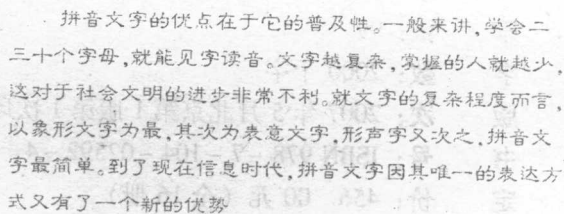 拼音文字的优点在于它的普及性。一般来讲,学会二
三十个字母,就能见字读音。文字越复杂,掌握的人就越少,
这对于社会文明的进步非常不利。就文字的复杂程度而言,
以象形文字为最,其次为表意文字,形声字又次之,拼音文
字最简单。到了现在信息时代,拼音文字因其唯一的表达方
式又有了一个新的优势